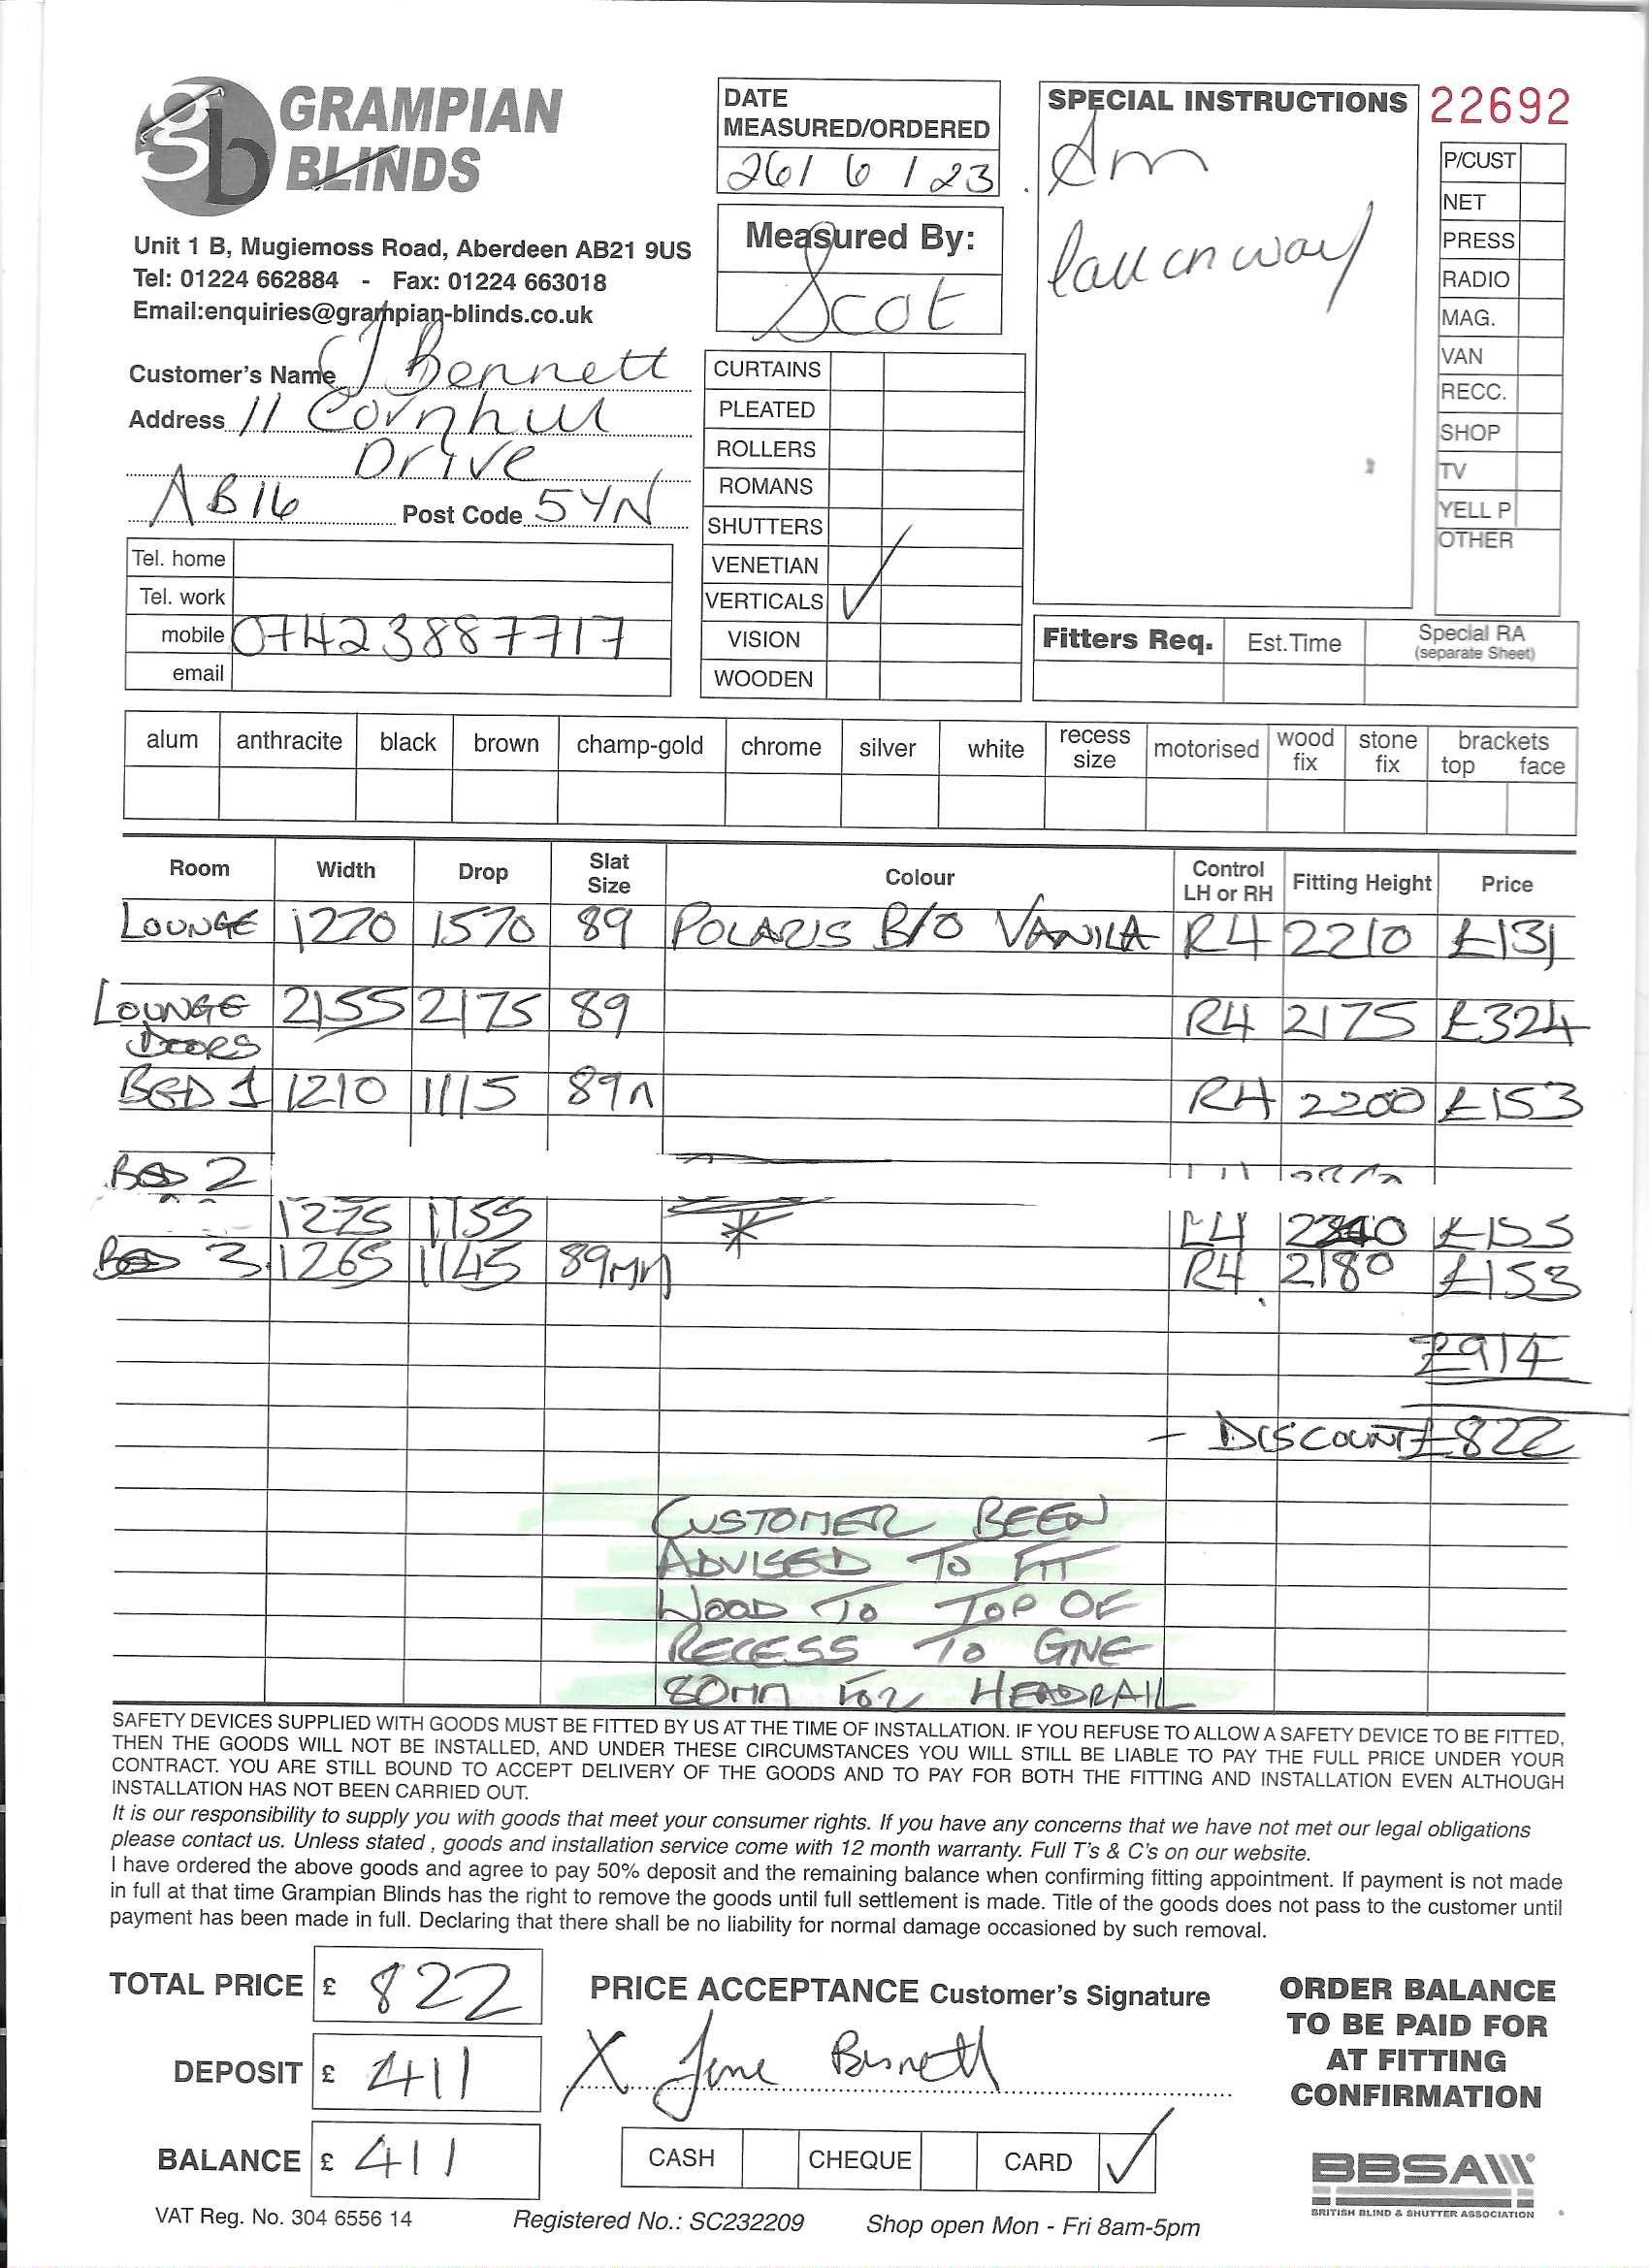 gb GRAMPIAN BLINDS
Unit 1 B, Mugiemoss Road, Aberdeen AB21 9US
Tel: 01224 662884 - Fax: 01224 663018
Email:enquiries@grampian-blinds.co.uk
Customer's Name CJ Bennett
Address 11 Cornhill
Drive
AB16 Post Code 5YN
Tel. home
Tel. work
mobile 07423887717
email
DATE
MEASURED/ORDERED
26/ 6 / 23
Measured By:
Scot
CURTAINS
PLEATED
ROLLERS
ROMANS
SHUTTERS
VENETIAN
VERTICALS ✓
VISION
WOODEN
SPECIAL INSTRUCTIONS
Am
Call on way
22692
P/CUST
NET
PRESS
RADIO
MAG.
VAN
RECC.
SHOP
TV
YELL P
OTHER
Fitters Req. Est.Time Special RA
(separate Sheet)
alum anthracite black brown champ-gold chrome silver white recess size motorised wood fix stone fix brackets top face
Room Width Drop Slat Size Colour Control LH or RH Fitting Height Price
LOUNGE 1220 1570 89 POLARIS B/O VANILA R4 2210 £131
LOUNGE 2155 2175 89 R4 2175 £324
DOORS
BED 1 1210 1115 89m R4 2200 £153
BED 2
1275 1155 * L4 £155
BED 3 1265 1145 89mm R4 2180 £153
£914
- DISCOUNT £822
CUSTOMER BEEN
ADVISED TO FIT
WOOD TO TOP OF
RECESS TO GIVE
80mm FOR HEADRAIL
SAFETY DEVICES SUPPLIED WITH GOODS MUST BE FITTED BY US AT THE TIME OF INSTALLATION. IF YOU REFUSE TO ALLOW A SAFETY DEVICE TO BE FITTED,
THEN THE GOODS WILL NOT BE INSTALLED, AND UNDER THESE CIRCUMSTANCES YOU WILL STILL BE LIABLE TO PAY THE FULL PRICE UNDER YOUR
CONTRACT. YOU ARE STILL BOUND TO ACCEPT DELIVERY OF THE GOODS AND TO PAY FOR BOTH THE FITTING AND INSTALLATION EVEN ALTHOUGH
INSTALLATION HAS NOT BEEN CARRIED OUT.
It is our responsibility to supply you with goods that meet your consumer rights. If you have any concerns that we have not met our legal obligations
please contact us. Unless stated , goods and installation service come with 12 month warranty. Full T's & C's on our website.
I have ordered the above goods and agree to pay 50% deposit and the remaining balance when confirming fitting appointment. If payment is not made
in full at that time Grampian Blinds has the right to remove the goods until full settlement is made. Title of the goods does not pass to the customer until
payment has been made in full. Declaring that there shall be no liability for normal damage occasioned by such removal.
TOTAL PRICE £ 822
DEPOSIT £ 411
BALANCE £ 411
PRICE ACCEPTANCE Customer's Signature
X Jane Bennett
CASH CHEQUE CARD ✓
ORDER BALANCE
TO BE PAID FOR
AT FITTING
CONFIRMATION
BBSA
BRITISH BLIND & SHUTTER ASSOCIATION
VAT Reg. No. 304 6556 14 Registered No.: SC232209 Shop open Mon - Fri 8am-5pm